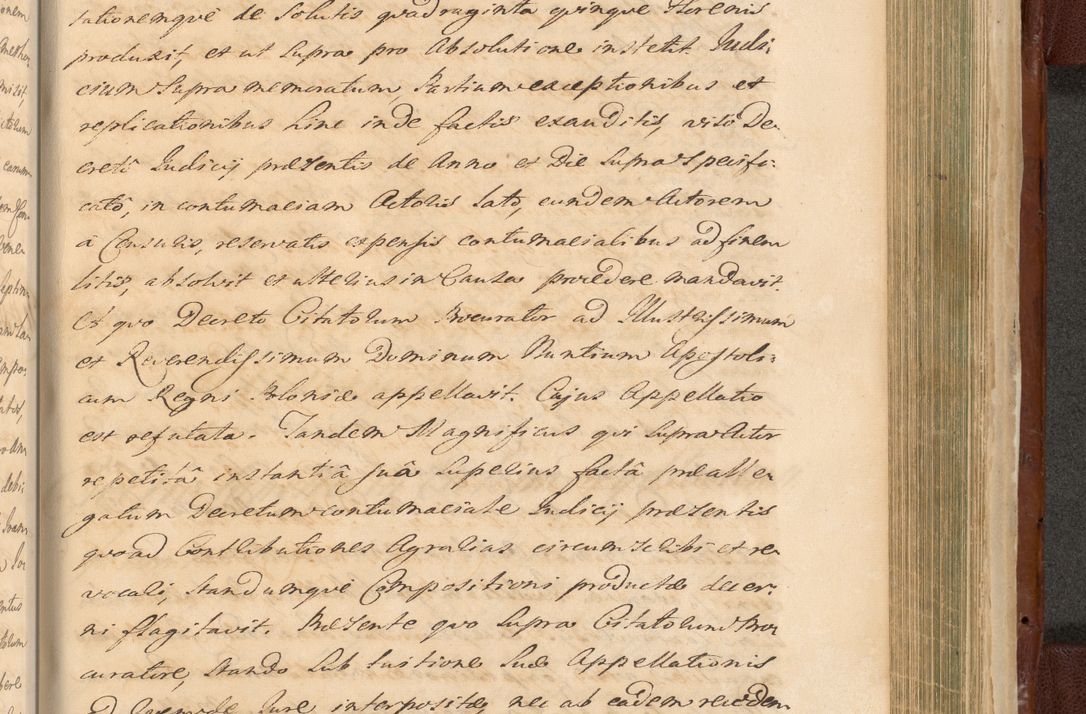 tationemque de Solutis quadraginta quinque Florenis
produxit, et ut Supra pro Absolutione institit. Judi:
cium Supra memoratum, Partium exceptionibus et
replicationibus hinc inde factis exauditis, viso De:
creto Judicij praesentis de Anno et Die Supra Specifi:
cato, in contumaciam Actoris lato, eundem Actorem
â Censuris, reservatis expensis contumacialibus ad finem
litis, absolvit et ulterius in Causa procedere mandavit.
Et quo Decreto Citatorum Procurator ad Illustrissimum
et Reverendissimum Dominum Nuntium Apostoli:
cum Regni Poloniae appellavit. Cujus Appellatio
est refutata. Tandem Magnificus qui Supra Actor
repetitâ instantiâ suâ Superius factâ praealle:
gatum Decretum contumaciale Judicij praesentis
quoad Contributiones Agrarias circumscribi et re:
vocari, Standumque Compositioni productae decer:
ni flagitavit. Praesente quo Supra Citatorum Pro:
curatore, Stando Sub tuitione Suae Appellationis
Jure interpositae, nec ab eadem recedem